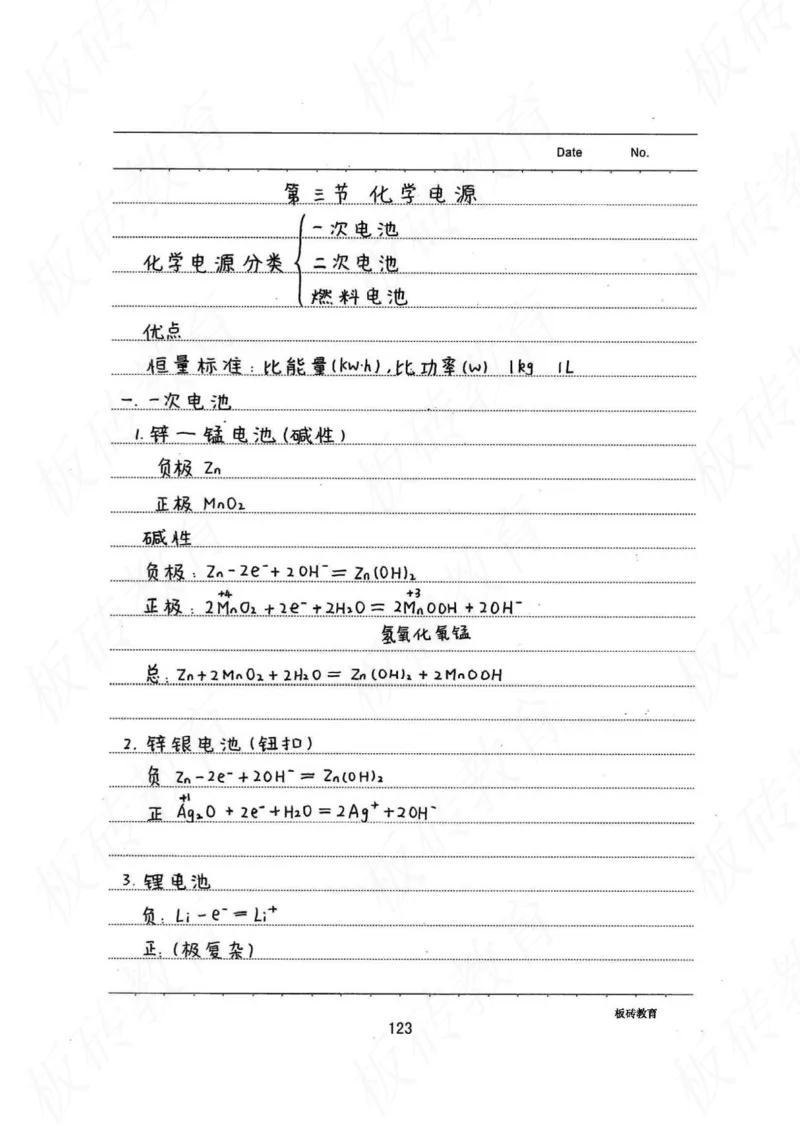 Date No.
第三节 化学电源
一次电池
化学电源分类 二次电池
燃料电池
优点
恒量标准：比能量(kW·h)，比功率(W) 1kg 1L
一. 一次电池
1. 锌一锰电池(碱性)
负极 Zn
正极 MnO₂
碱性
负极：Zn-2e⁻+2OH⁻=Zn(OH)₂
+4 +3
正极：2MnO₂+2e⁻+2H₂O=2MnOOH+2OH⁻
氢氧化氧锰
总：Zn+2MnO₂+2H₂O=Zn(OH)₂+2MnOOH
2. 锌银电池(钮扣)
负 Zn-2e⁻+2OH⁻=Zn(OH)₂
+1
正 Ag₂O+2e⁻+H₂O=2Ag⁺+2OH⁻
3. 锂电池
负：Li-e⁻=Li⁺
正：(极复杂)
板砖教育
123